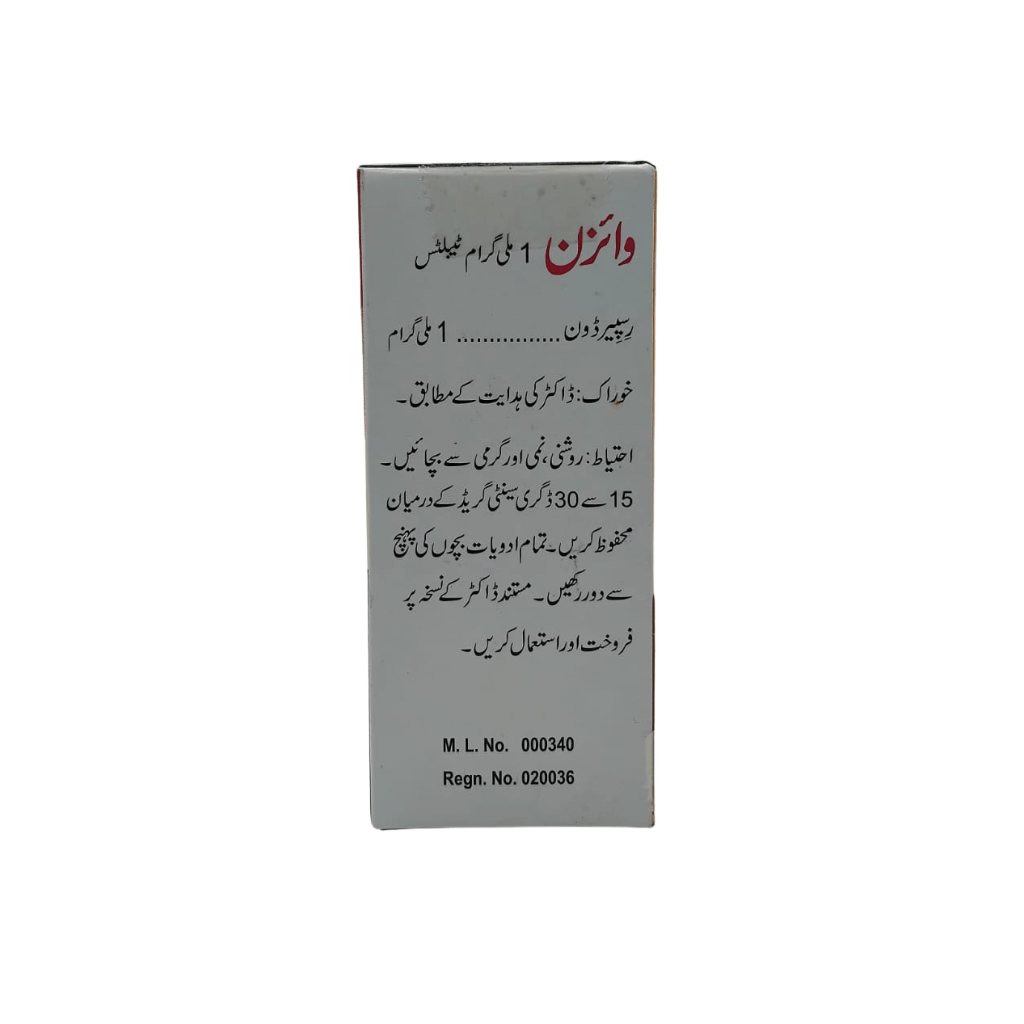 وائزن 1 ملی گرام ٹیبلٹس
رِسپِیرڈون ................ 1 ملی گرام
خوراک: ڈاکٹر کی ہدایت کے مطابق۔
احتیاط: روشنی، نمی اور گرمی سے بچائیں۔
15 سے 30 ڈگری سینٹی گریڈ کے درمیان
محفوظ کریں۔ تمام ادویات بچوں کی پہنچ
سے دور رکھیں۔ مستند ڈاکٹر کے نسخہ پر
فروخت اور استعمال کریں۔
M. L. No. 000340
Regn. No. 020036